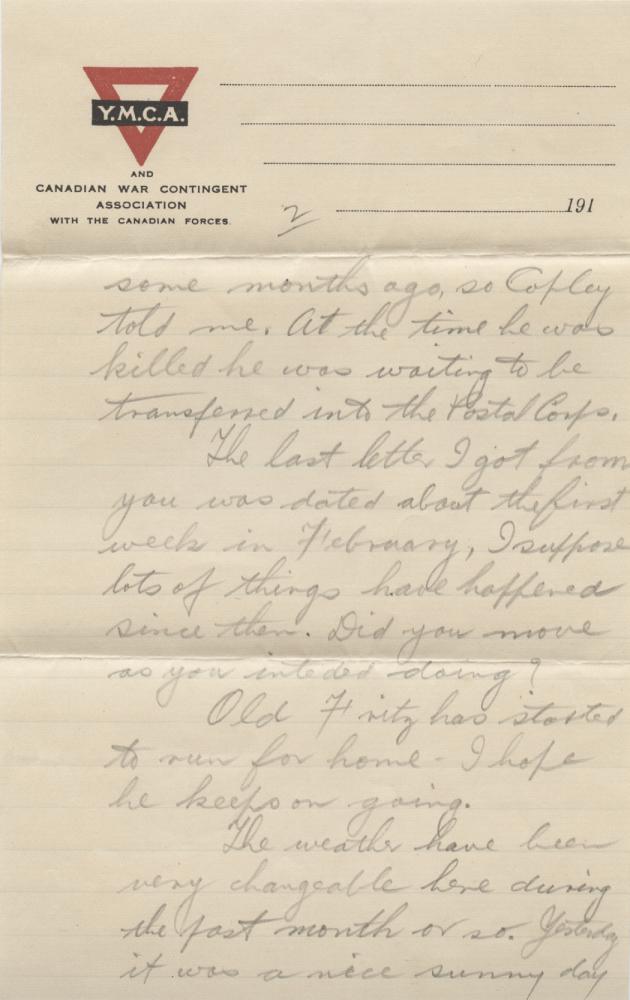 Y.M.C.A.
AND
CANADIAN WAR CONTINGENT
ASSOCIATION
WITH THE CANADIAN FORCES.
2
191
some months ago, so Copley
told me. At the time he was
killed he was waiting to be
transferred into the Postal Corps.
The last letter I got from
you was dated about the first
week in February, I suppose
lots of things have happened
since then. Did you move
as you inteded doing?
Old Fritz has started
to run for home - I hope
he keeps on going.
The weather have been
very changeable here during
the past month or so. Yesterday
it was a nice sunny day